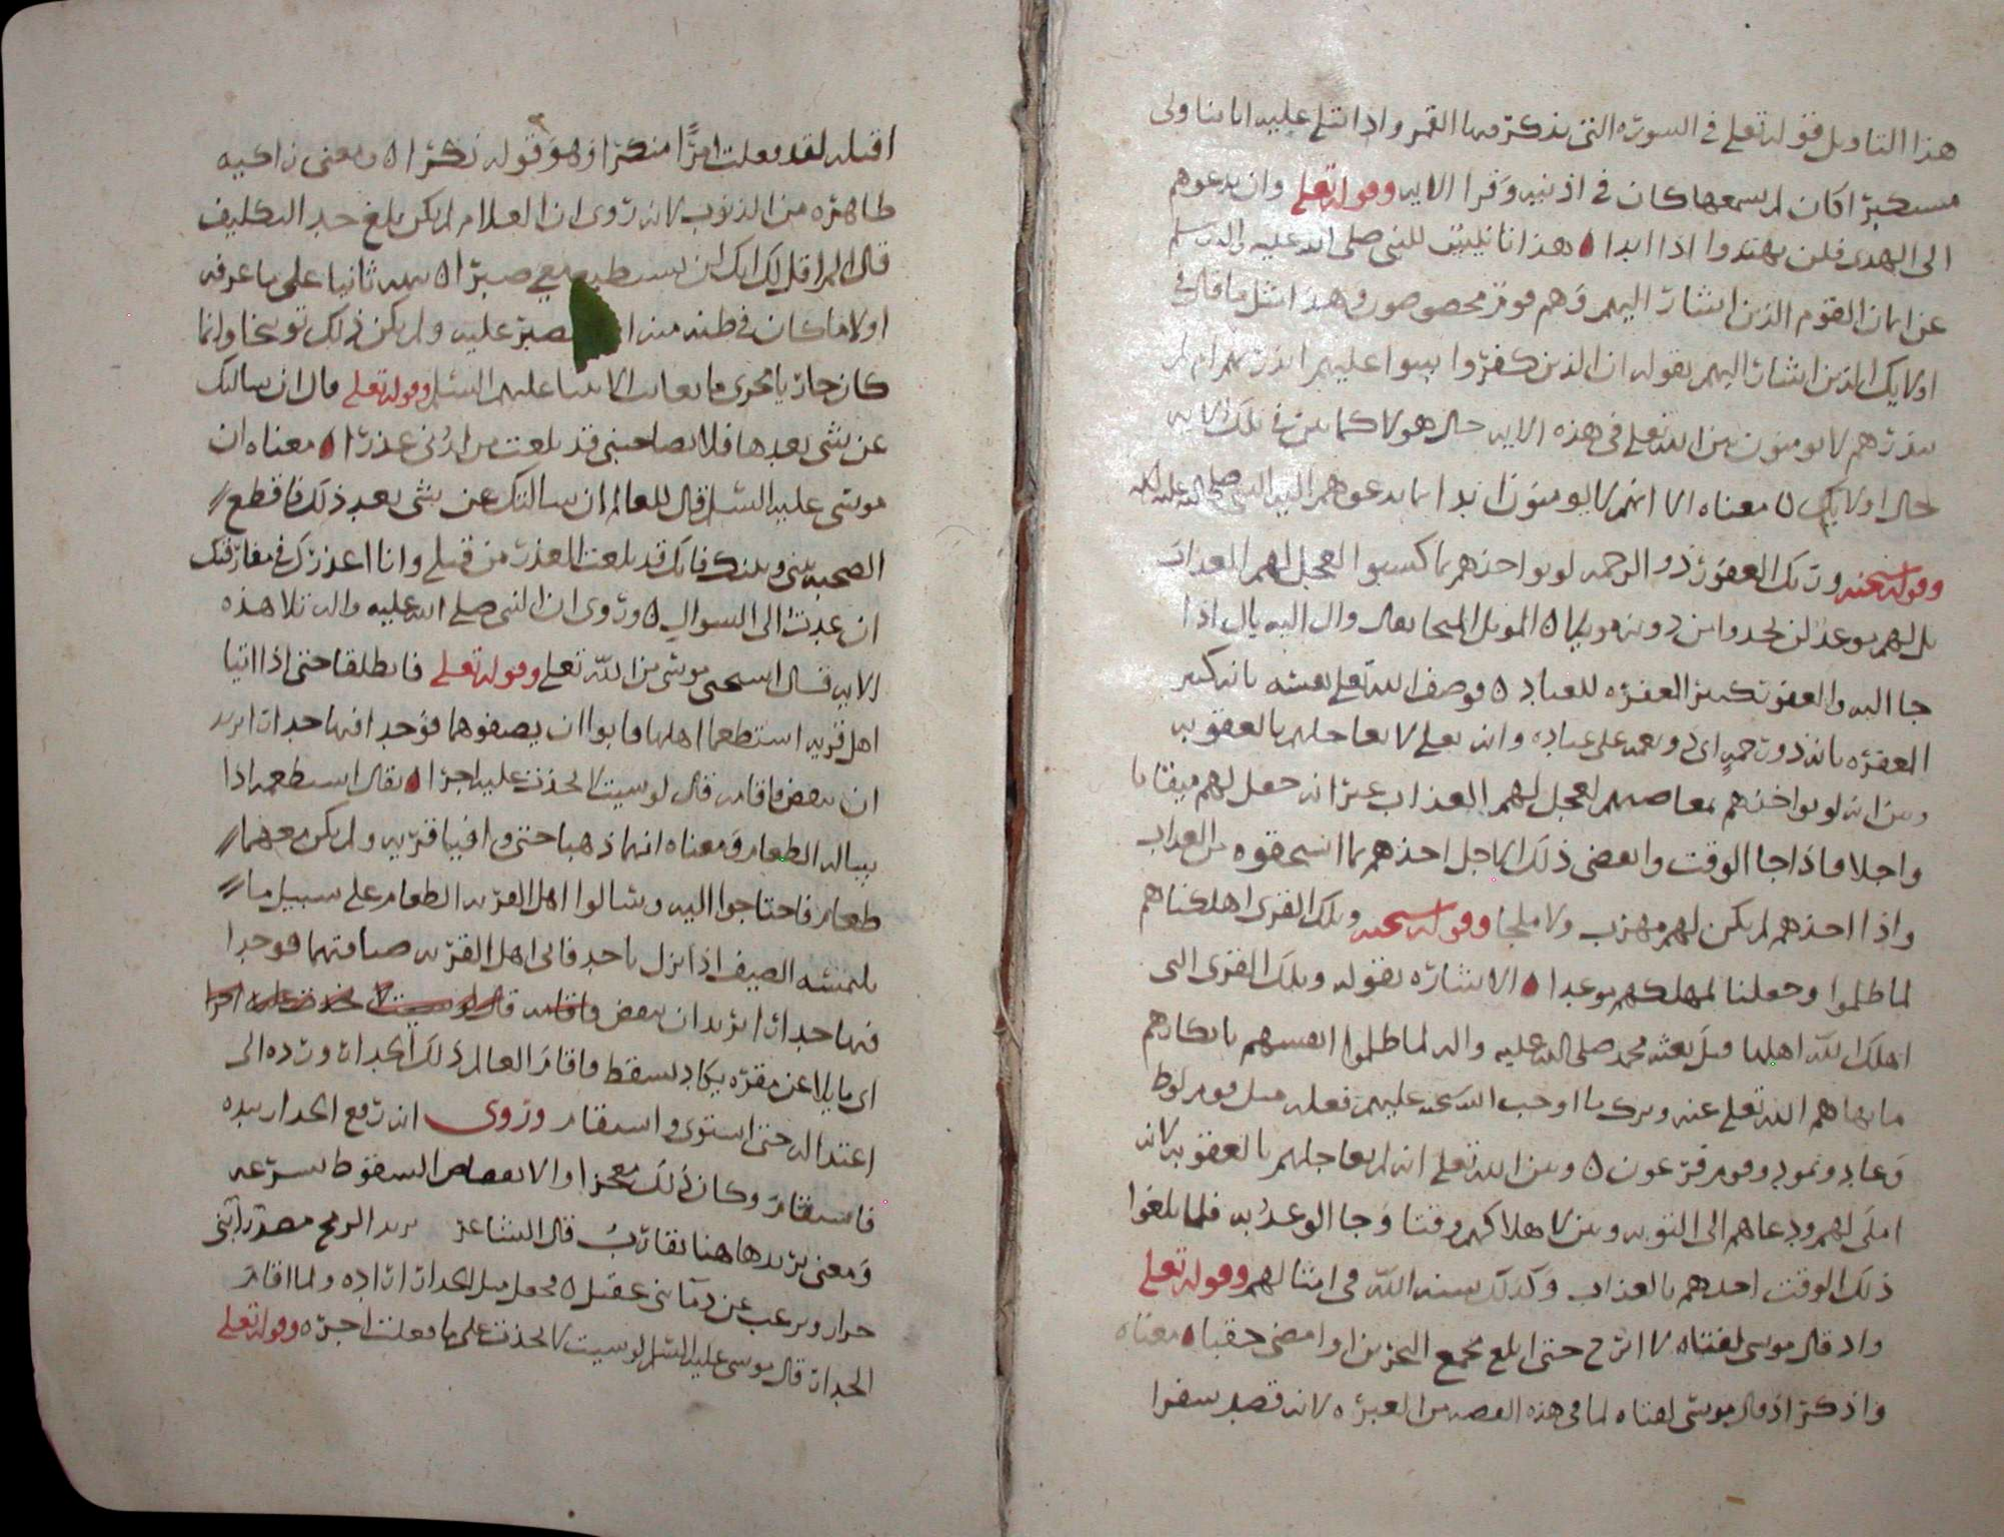 هذا التاويل فقوله تعلى في السورة التي يذكر فيها القمر واذا تتلى عليه اياتنا ولى
مستكبرا كان لم يسمعها كان في اذنيه وقرا الايه وقوله تعلى وان تدعوهم
الى الهدى فلن يهتدوا اذا ابدا ه هذا تاييس للنبي صلى الله عليه واله وسلم
عن ايمان القوم الذين اشار اليهم وهم قوم مخصوصون وهذا مثل ما قال في
اولايك الذين اشار اليهم بقوله ان الذين كفروا سوا عليهم اانذرتهم ام لم
تنذرهم لا يومنون بين الله تعلى في هذه الايه حال هولا كما بين في تلك الايه
حال اولايك ه معناه الا انهم لا يومنون ابدا بما يدعوهم اليه النبي صلى الله عليه واله
وقوله سبحنه وربك الغفور ذو الرحمه لو يواخذهم بما كسبوا لعجل لهم العذاب
بل لهم موعد لن يجدوا من دونه مويلا ه الموئل الملجا يقال وال اليه يال اذا
جا اليه والغفور تكثير المغفره للعباد ه فوصف الله تعلى نفسه بانه كثير
المغفره بانه ذو رحمه اي ذو نعمه على عباده وانه تعلى لا يعاجلهم بالعقوبه
وبين انه لو يواخذهم بمعاصيهم لعجل لهم العذاب غير انه جعل لهم ميقاتا
واجلا فاذا جا الوقت وانقضى ذلك الاجل اخذهم بما استحقوه من العذاب
واذا اخذهم لم يكن لهم مهرب ولا ملجا وقوله سبحنه وتلك القرى اهلكناهم
لما ظلموا وجعلنا لمهلكهم موعدا ه الاشاره بقوله وتلك القرى التي
اهلك الله اهلها قبل بعثه محمد صلى الله عليه واله لما ظلموا انفسهم بانكارهم
ما نهاهم الله تعلى عنه وترك ما اوجب الله سبحنه عليهم فعله مثل قوم لوط
وعاد وثمود وقوم فرعون ه وبين الله تعلى انه لم يعاجلهم بالعقوبه لانه
املى لهم ودعاهم الى التوبه وبين لاهلاكهم وقتا وجا الوعد به فلما بلغوا
ذلك الوقت اخذهم بالعذاب وكذلك سنه الله في امثالهم وقوله تعلى
واذ قال موسى لفتاه لا ابرح حتى ابلغ مجمع البحرين او امضي حقبا ه معناه
واذكر اذ قال موسى لفتاه لما في هذه القصه من العبره لانه قصد سفرا
اقتله لقد فعلت امرا منكرا وهو قوله نكرا ه ومعنى زاكيه
طاهره من الذنوب لانه روى ان الغلام لم يكن بلغ حد التكليف
قال الم اقل لك انك لن تستطيع معي صبرا ه نبهه ثانيا على ما عرفه
اولا ما كان في ظنه منه يصبر عليه ولم يكن ذلك توبيخا وانما
كان جاريا مجرى ما يعاتب الانبيا عليهم السلم وقوله تعلى قال ان سالتك
عن شي بعدها فلا تصاحبني قد بلغت من لدني عذرا ه معناه ان
موسى عليه السلم قال للعالم ان سالتك عن شي بعد ذلك فاقطع
الصحبه بيني وبينك فانك قد بلغت العذر من قبلي وانا اعذرك في مفارقتك
ان عدت الى السوال ه وروى ان النبي صلى الله عليه واله تلا هذه
الايه فقال استحيى موسى من الله تعلى وقوله تعلى فانطلقا حتى اذا اتيا
اهل قريه استطعما اهلها فابوا ان يضيفوهما فوجدا فيها جدارا يريد
ان ينقض فاقامه قال لو شيت لاتخذت عليه اجرا ه يقال استطعمه اذا
ساله الطعام ومعناه انهما ذهبا حتى وافيا قريه ولم يكن معهما
طعام فاحتاجوا اليه وسالوا اهل القريه الطعام على سبيل ما
يلتمسه الضيف اذا نزل باحد فابى اهل القريه ضيافتهما فوجدا
فيها جدارا يريد ان ينقض فاقامه قال لو شيت لاتخذت عليه اجرا
اي مايلا عن مقره يكاد يسقط فاقام العالم ذلك الجدار ورده الى
اعتداله حتى استوى واستقام وروى انه رفع الجدار بيده
فاستقام وكان ذلك معجزا والانقضاض السقوط بسرعه
ومعنى يريد هاهنا يقارب قال الشاعر يريد الرمح صدر ابي
ويرغب عن دما بني عقيل ه فجعل ميل الجدار اراده ولما اقام
الجدار قال موسى عليه السلم لو شيت لاتخذت على ما فعلت اجره وقوله تعلى